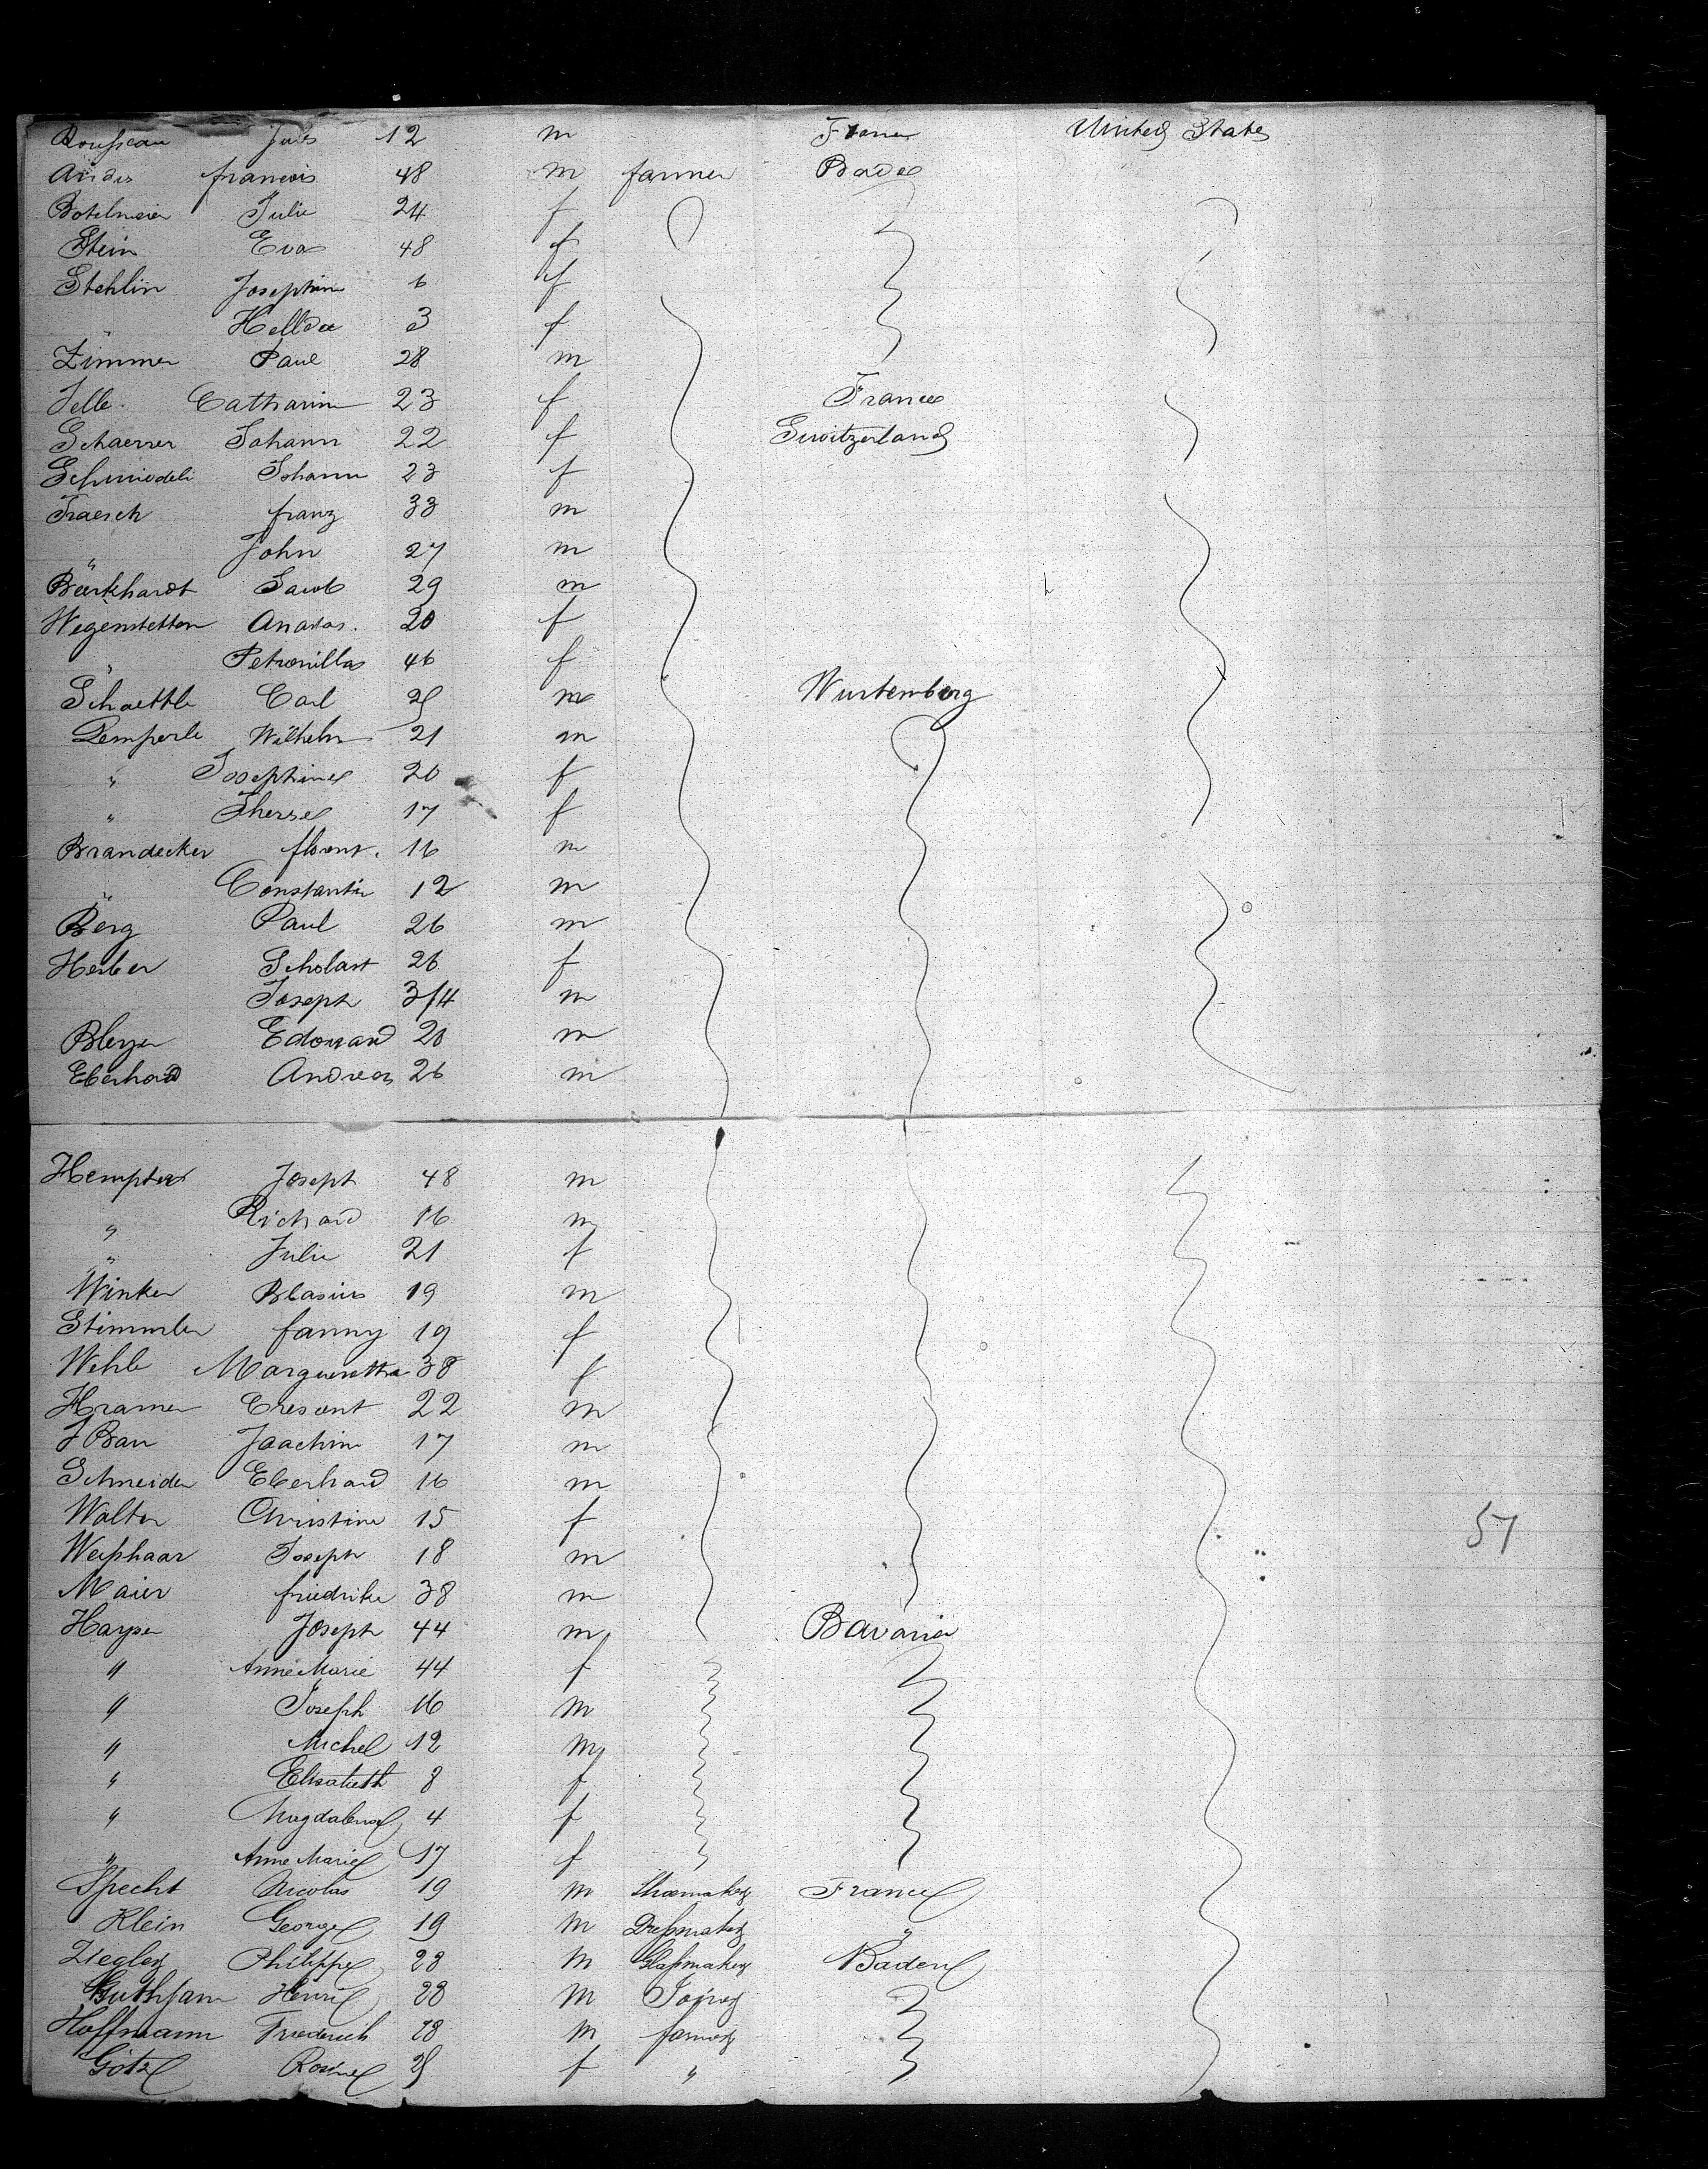 Rousseau Jules 12 m France United States
francois 48 m farmer Bade
Botelmeier Julie 24 f
Stein Eva 48 f
Stehlin Josephin 6 f
" 3 f
Zimmer Paul 28 m
Jelle Catharin 23 f France
Schaerrer Johann 22 f Switzerland
Schmiedeli Johann 23 f
Traesch franz 33 m
" John 27 m
Burkhardt Jacob 29 m
Wegenstetten Anastas. 20 f
" Petronilla 46 f
Schaettle Carl 25 m Wurtemberg
Lemperle Wilhelm 21 m
" Josephine 20 f
" Therese 17 f
Brandecker florent. 16 m
" Constantin 12 m
Berg Paul 26 m
Herber Scholast 26 f
Joseph 3/4 m
Bleyer Edouard 20 m
Eberhard Andreas 26 m
Hempter Joseph 48 m
" Richard 16 m
" Julie 21 f
Winker Blasius 19 m
Stimmler fanny 19 f
Wehle Marguerettha 38 f
Kramer Cresent 22 m
J Bau Joachim 17 m
Schneider Eberhard 16 m
Walter Christine 15 f 57
Weishaar Joseph 18 m
Maier friedrike 38 m
Harpe Joseph 44 m Bavaria
" Anne Marie 44 f
" Joseph 16 m
" Michel 12 m
" Elisabeth 8 f
" Magdalena 4 f
" Anne Marie 17 f
Specht Nicolas 19 m Shoemaker France
Klein George 19 m Dressmaker "
Ziegler Philippe 28 m Glassmaker Baden
Guthjam Henri 28 m Joiner
Hoffmann Friederich 28 m farmer
Götz Rosine 25 f "